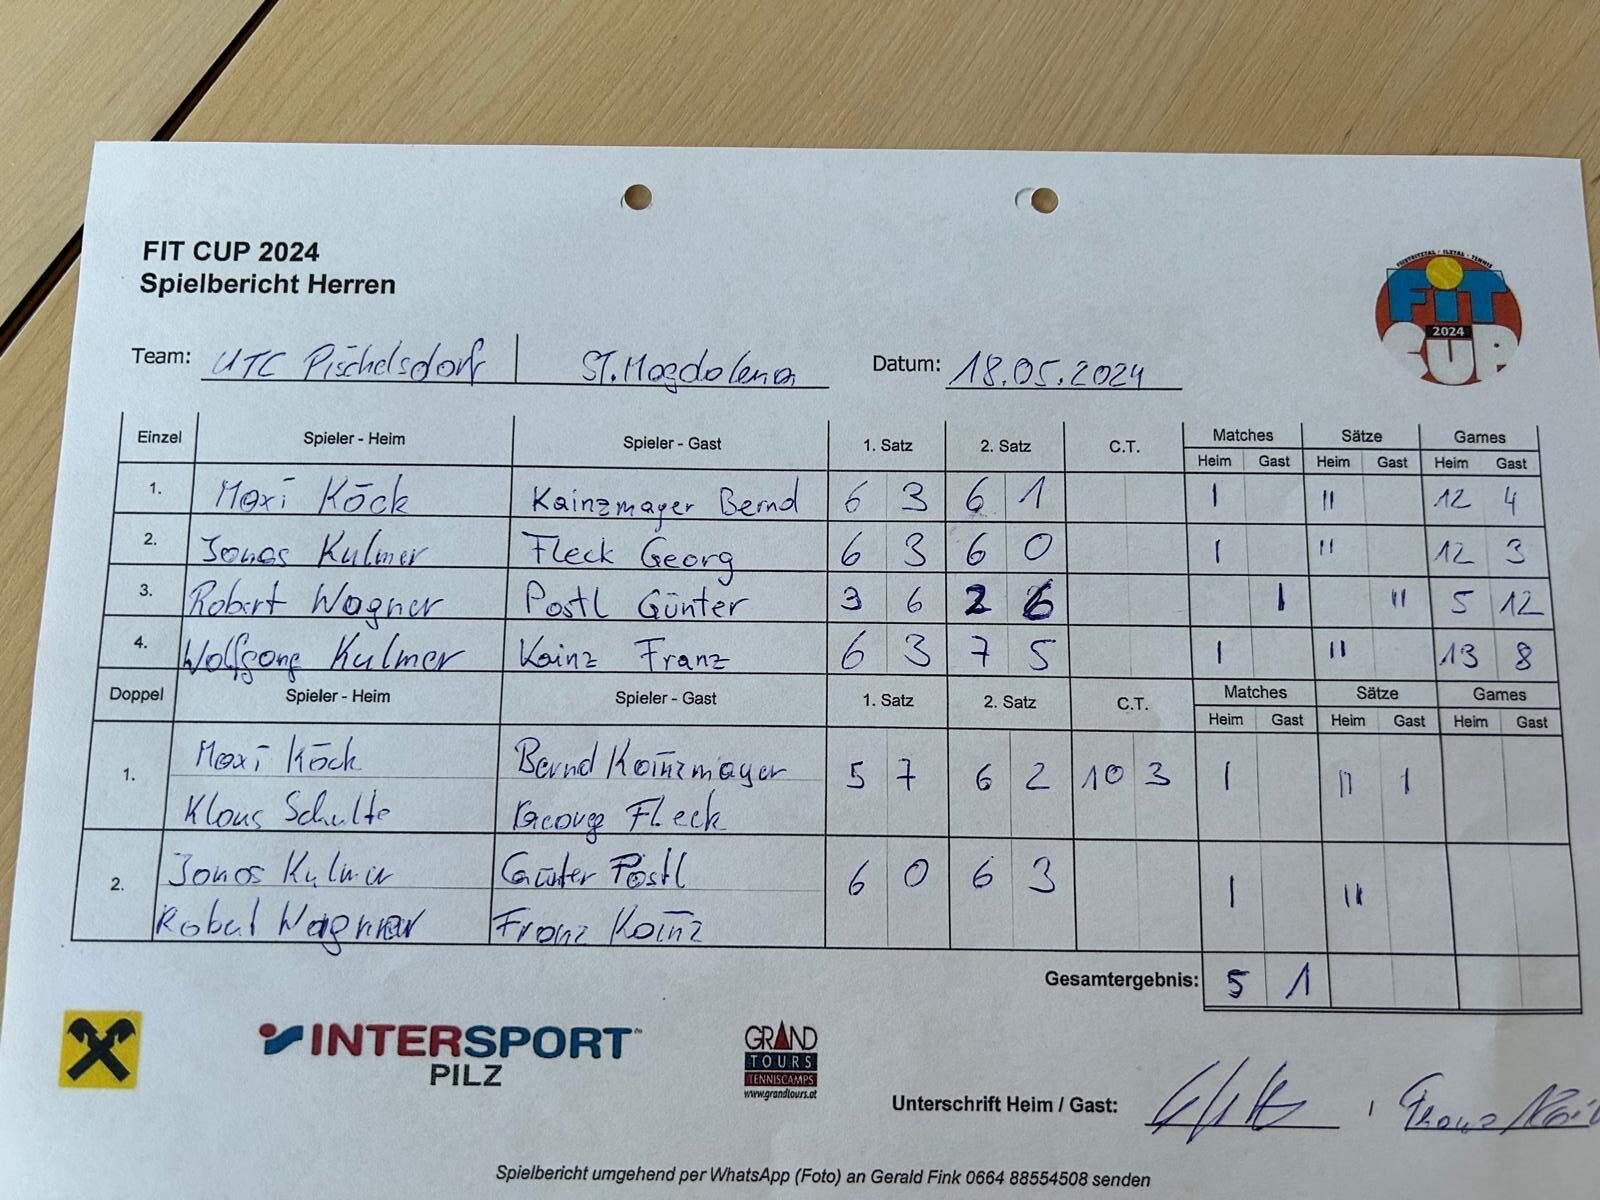 FIT CUP 2024
Spielbericht Herren
FEISTRITZTAL - ILZTAL - TENNIS
FiT
2024
CUP
Team: UTC Pischelsdorf | ST. Magdalena Datum: 18.05.2024
Einzel Spieler - Heim Spieler - Gast 1. Satz 2. Satz C.T. Matches Sätze Games
Heim Gast Heim Gast Heim Gast
1. Maxi Köck Kainzmayer Bernd 6 3 6 1 I II 12 4
2. Jonas Kulmer Fleck Georg 6 3 6 0 I II 12 3
3. Robert Wagner Postl Günter 3 6 2 6 I II 5 12
4. Wolfgang Kulmer Kainz Franz 6 3 7 5 I II 13 8
Doppel Spieler - Heim Spieler - Gast 1. Satz 2. Satz C.T. Matches Sätze Games
Heim Gast Heim Gast Heim Gast
Maxi Köck Bernd Kainzmayer
1. 5 7 6 2 10 3 I II I
Klaus Schulte Georg Fleck
Jonas Kulmer Günter Postl
2. 6 0 6 3 I II
Robert Wagner Franz Kainz
Gesamtergebnis: 5 1
INTERSPORT
PILZ
GRAND
TOURS
TENNISCAMPS
www.grandtours.at
Unterschrift Heim / Gast: / Franz
Spielbericht umgehend per WhatsApp (Foto) an Gerald Fink 0664 88554508 senden